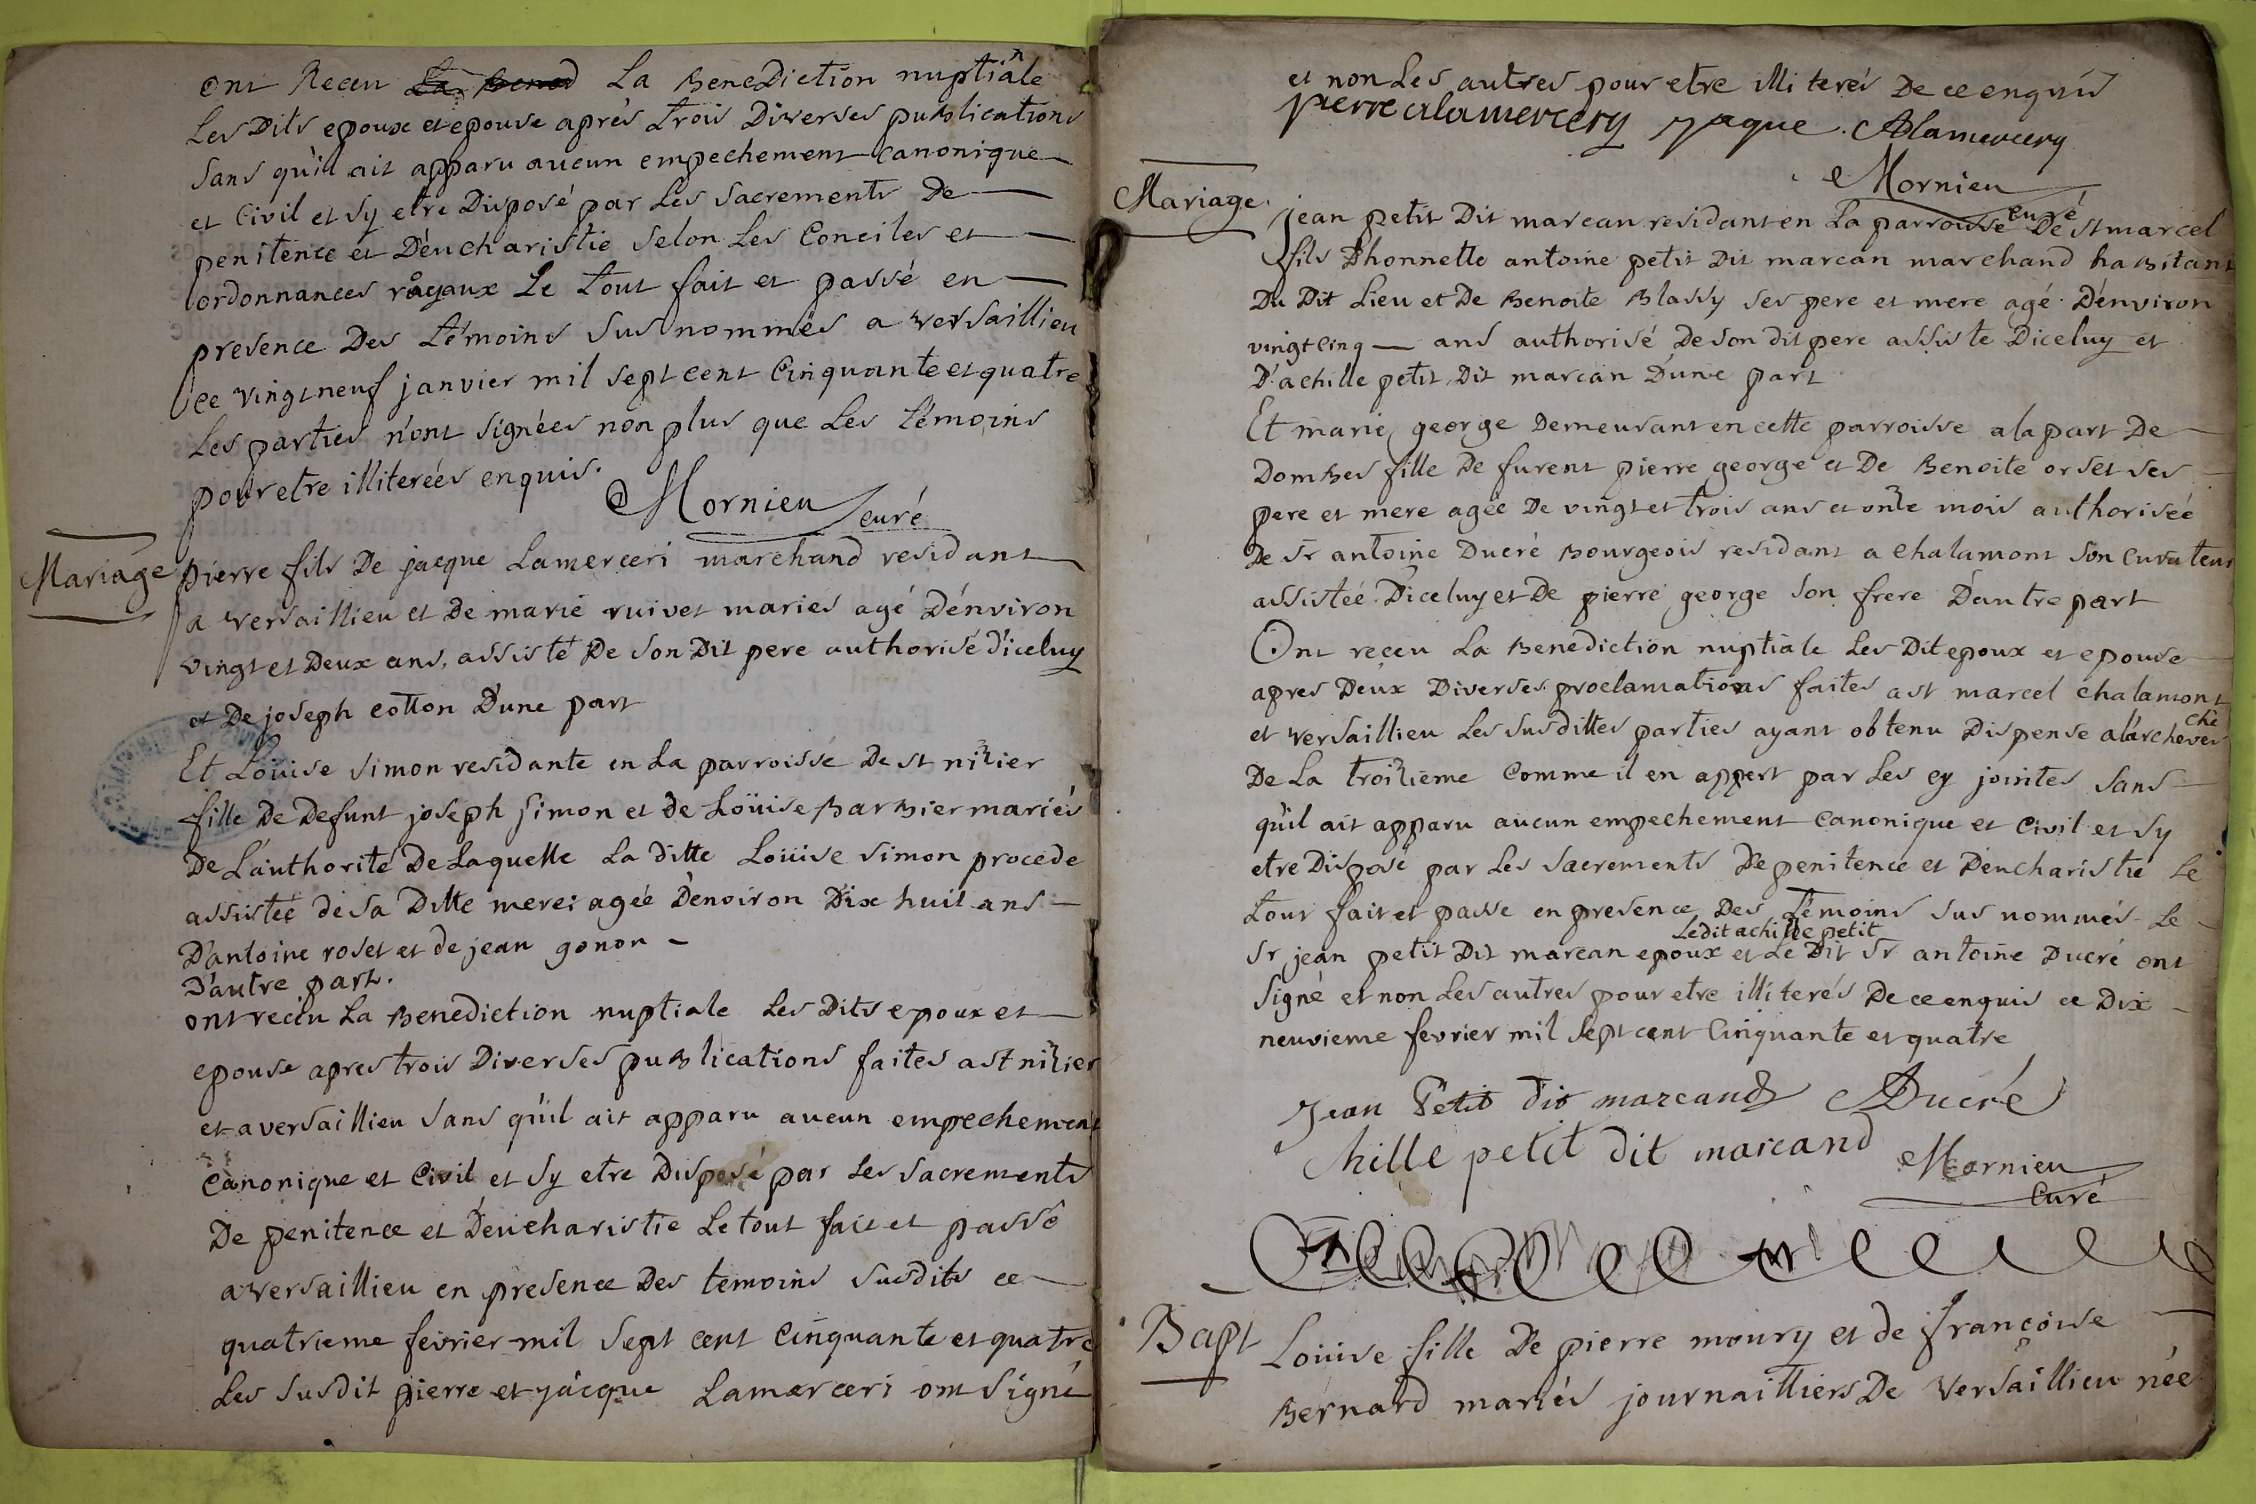 ont Receu La Bened La BeneDiction nuptiale
Les Dits epoux et epouse aprés trois Diverses puBlications
Sans qu'il ait apparu aucun empechement canonique
et Civil et sy etre Disposé par Les Sacrements De
penitence et D'eucharistie Selon Les Conciles et
ordonnances royaux Le tout fait et passé en
presence Des témoins Sus nommés a versaillieu
ce vingt neuf janvier mil sept cent Cinquante et quatre
Les parties n'ont signées non plus que Les témoins
pour etre illiterées enquis.
Mornieu curé
Mariage
pierre fils De jacque Lamerceri marchand residant
a versaillieu et De marie ruivet mariés agé D'environ
vingt et Deux ans, assisté De son Dit pere authorisé d'iceluy
et De joseph cotton D'une part
Et Loüise simon residante en La parroisse De st nizier
fille De Defunt joseph simon et de Loüise BarBier mariés
De L'authorité De Laquelle La ditte Loüise simon procede
assistée de sa Ditte mere agée D'environ Dix huit ans
D'antoine roset et de jean gonon
D'autre part.
ont recéu La Benediction nuptiale Les Dits epoux et
epouse apres trois Diverses puBlications faites a st nizier
et a versaillieu sans qu'il ait apparu aucun empechement
canonique et Civil et sy etre Disposé par Les sacrements
De penitence et D'eucharistie Le tout fait et passé
a versaillieu en presence Des temoins susdits ce
quatrieme fevrier mil sept cent Cinquante et quatre
Les susdit pierre et jácque Lamerceri ont signé
et non Les autres pour etre illiterés De ce enquis
pierre alamercery jaque Alamercery
Mornieu
curé
Mariage.
jean petit Dit marcan residant en La parroisse De st marcel
fils D'honnette antoine petit Dit marcan marchand haBitant
Du Dit Lieu et De Benoite Blassy ses pere et mere agé D'environ
vingt cinq ans authorisé De son dit pere assiste D'iceluy et
D'achille petit Dit marcan D'une part
Et marie george Demeurant en cette parroisse a la part De
DomBes fille De furent pierre george et De Benoite orset ses
pere et mere agée De vingt et trois ans et onze mois authorisée
De Sr antoine Ducré Bourgeois residant a Chalamont son curateur
assistée D'iceluy et De pierre george son frere D'autre part
Ont reçeu La Benediction nuptiale Les Dit epoux et epouse
apres Deux Diverses proclamations faites a st marcel chalamont
et versaillieu Les susdittes parties ayant obtenu Dispense a l'archevesché
De La troizieme Comme il en appert par Les cy jointes sans
qu'il ait apparu aucun empechement Canonique et Civil et sy
etre Disposé par Les sacrements De penitence et D'eucharistie Le
tout fait et passe en presence Des témoins sus nommés Le
Ledit achille petit
Sr jean petit Dit marcan epoux et Le Dit Sr antoine Ducré ont
signé et non Les autres pour etre illiterés De ce enquis ce Dix
neuvieme fevrier mil sept cent Cinquante et quatre
Jean Petit dit marcand Ducré
Chille petit dit marcand Mornieu
Curé
Bapt
Loüise fille De pierre moury et de françoise
Bernard mariés journailliers De versaillieu née